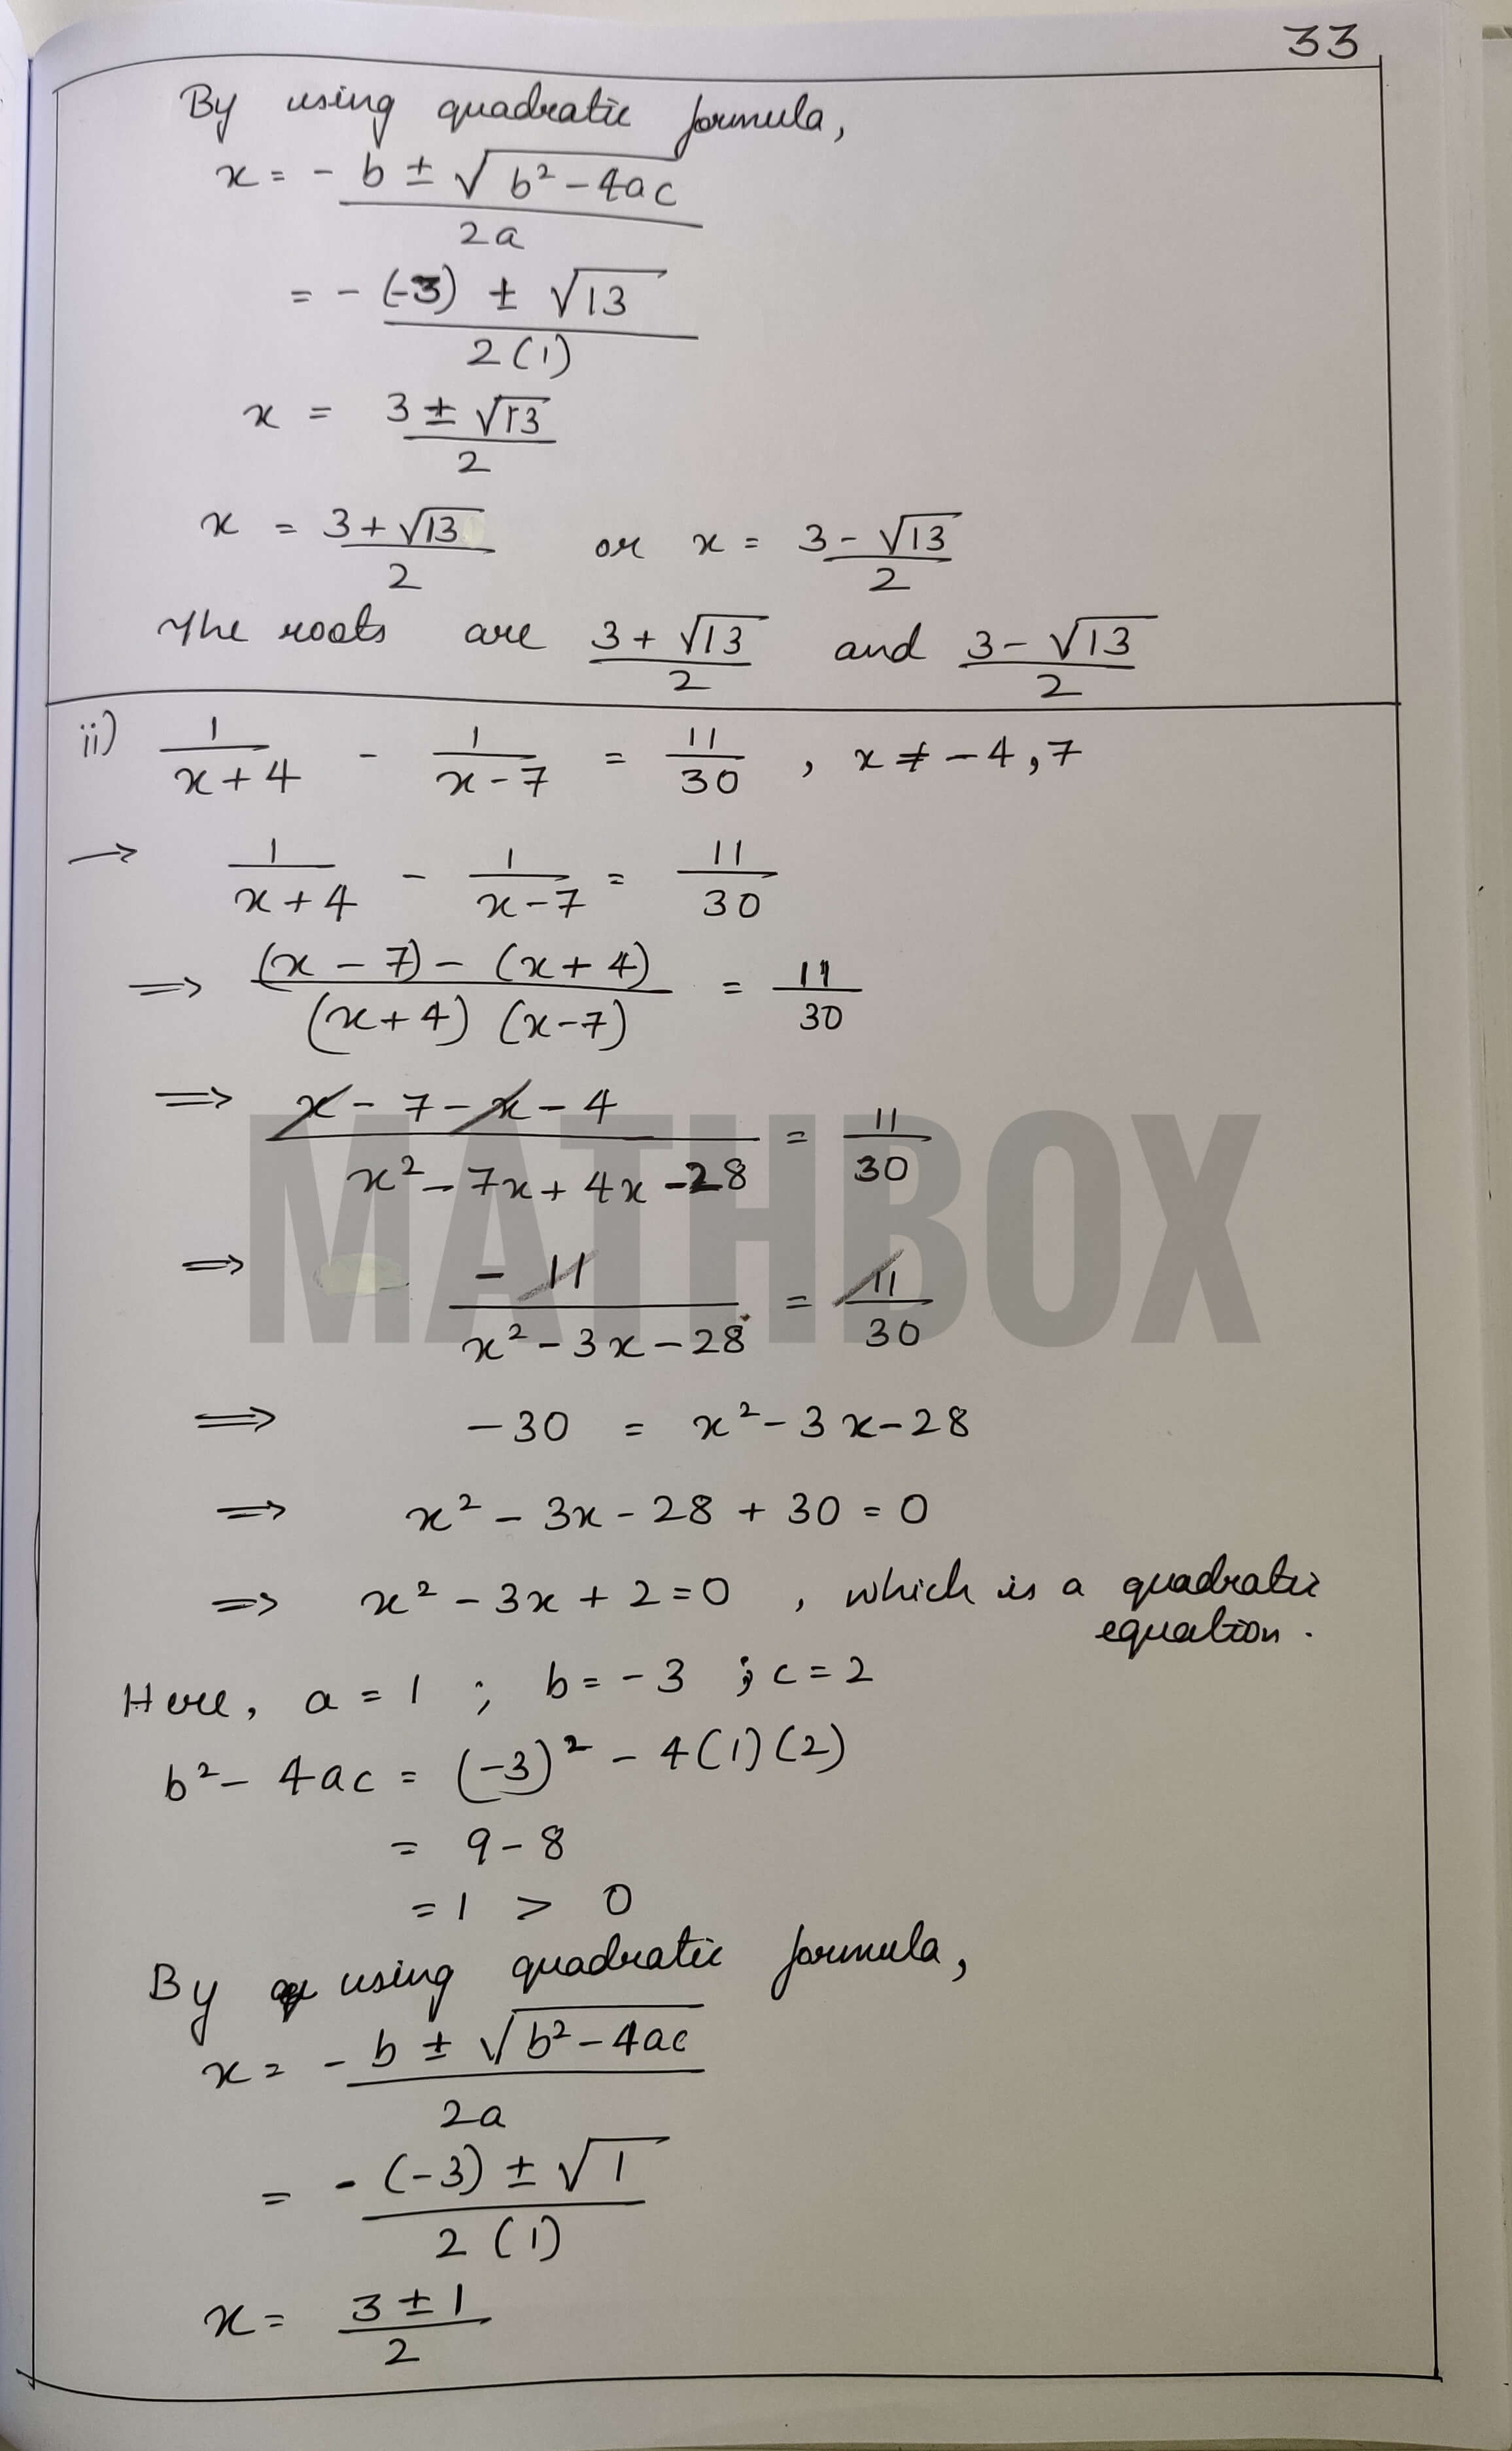 33
By using quadratic formula,
x = - b ± √b² - 4ac
2a
= - (-3) ± √13
2(1)
x = 3 ± √13
2
x = 3 + √13 / 2 or x = 3 - √13 / 2
The roots are 3 + √13 / 2 and 3 - √13 / 2
ii) 1/(x+4) - 1/(x-7) = 11/30 , x ≠ -4, 7
→ 1/(x+4) - 1/(x-7) = 11/30
⇒ (x - 7) - (x + 4) / (x+4) (x-7) = 11/30
⇒ x - 7 - x - 4 / x² - 7x + 4x - 28 = 11/30
MATHBOX
⇒ - 11 / x² - 3x - 28 = 11/30
⇒ -30 = x² - 3x - 28
⇒ x² - 3x - 28 + 30 = 0
⇒ x² - 3x + 2 = 0 , which is a quadratic
equation.
Here, a = 1 ; b = -3 ; c = 2
b² - 4ac = (-3)² - 4(1)(2)
= 9 - 8
= 1 > 0
By using quadratic formula,
x = - b ± √b² - 4ac
2a
= - (-3) ± √1
2 (1)
x = 3 ± 1
2